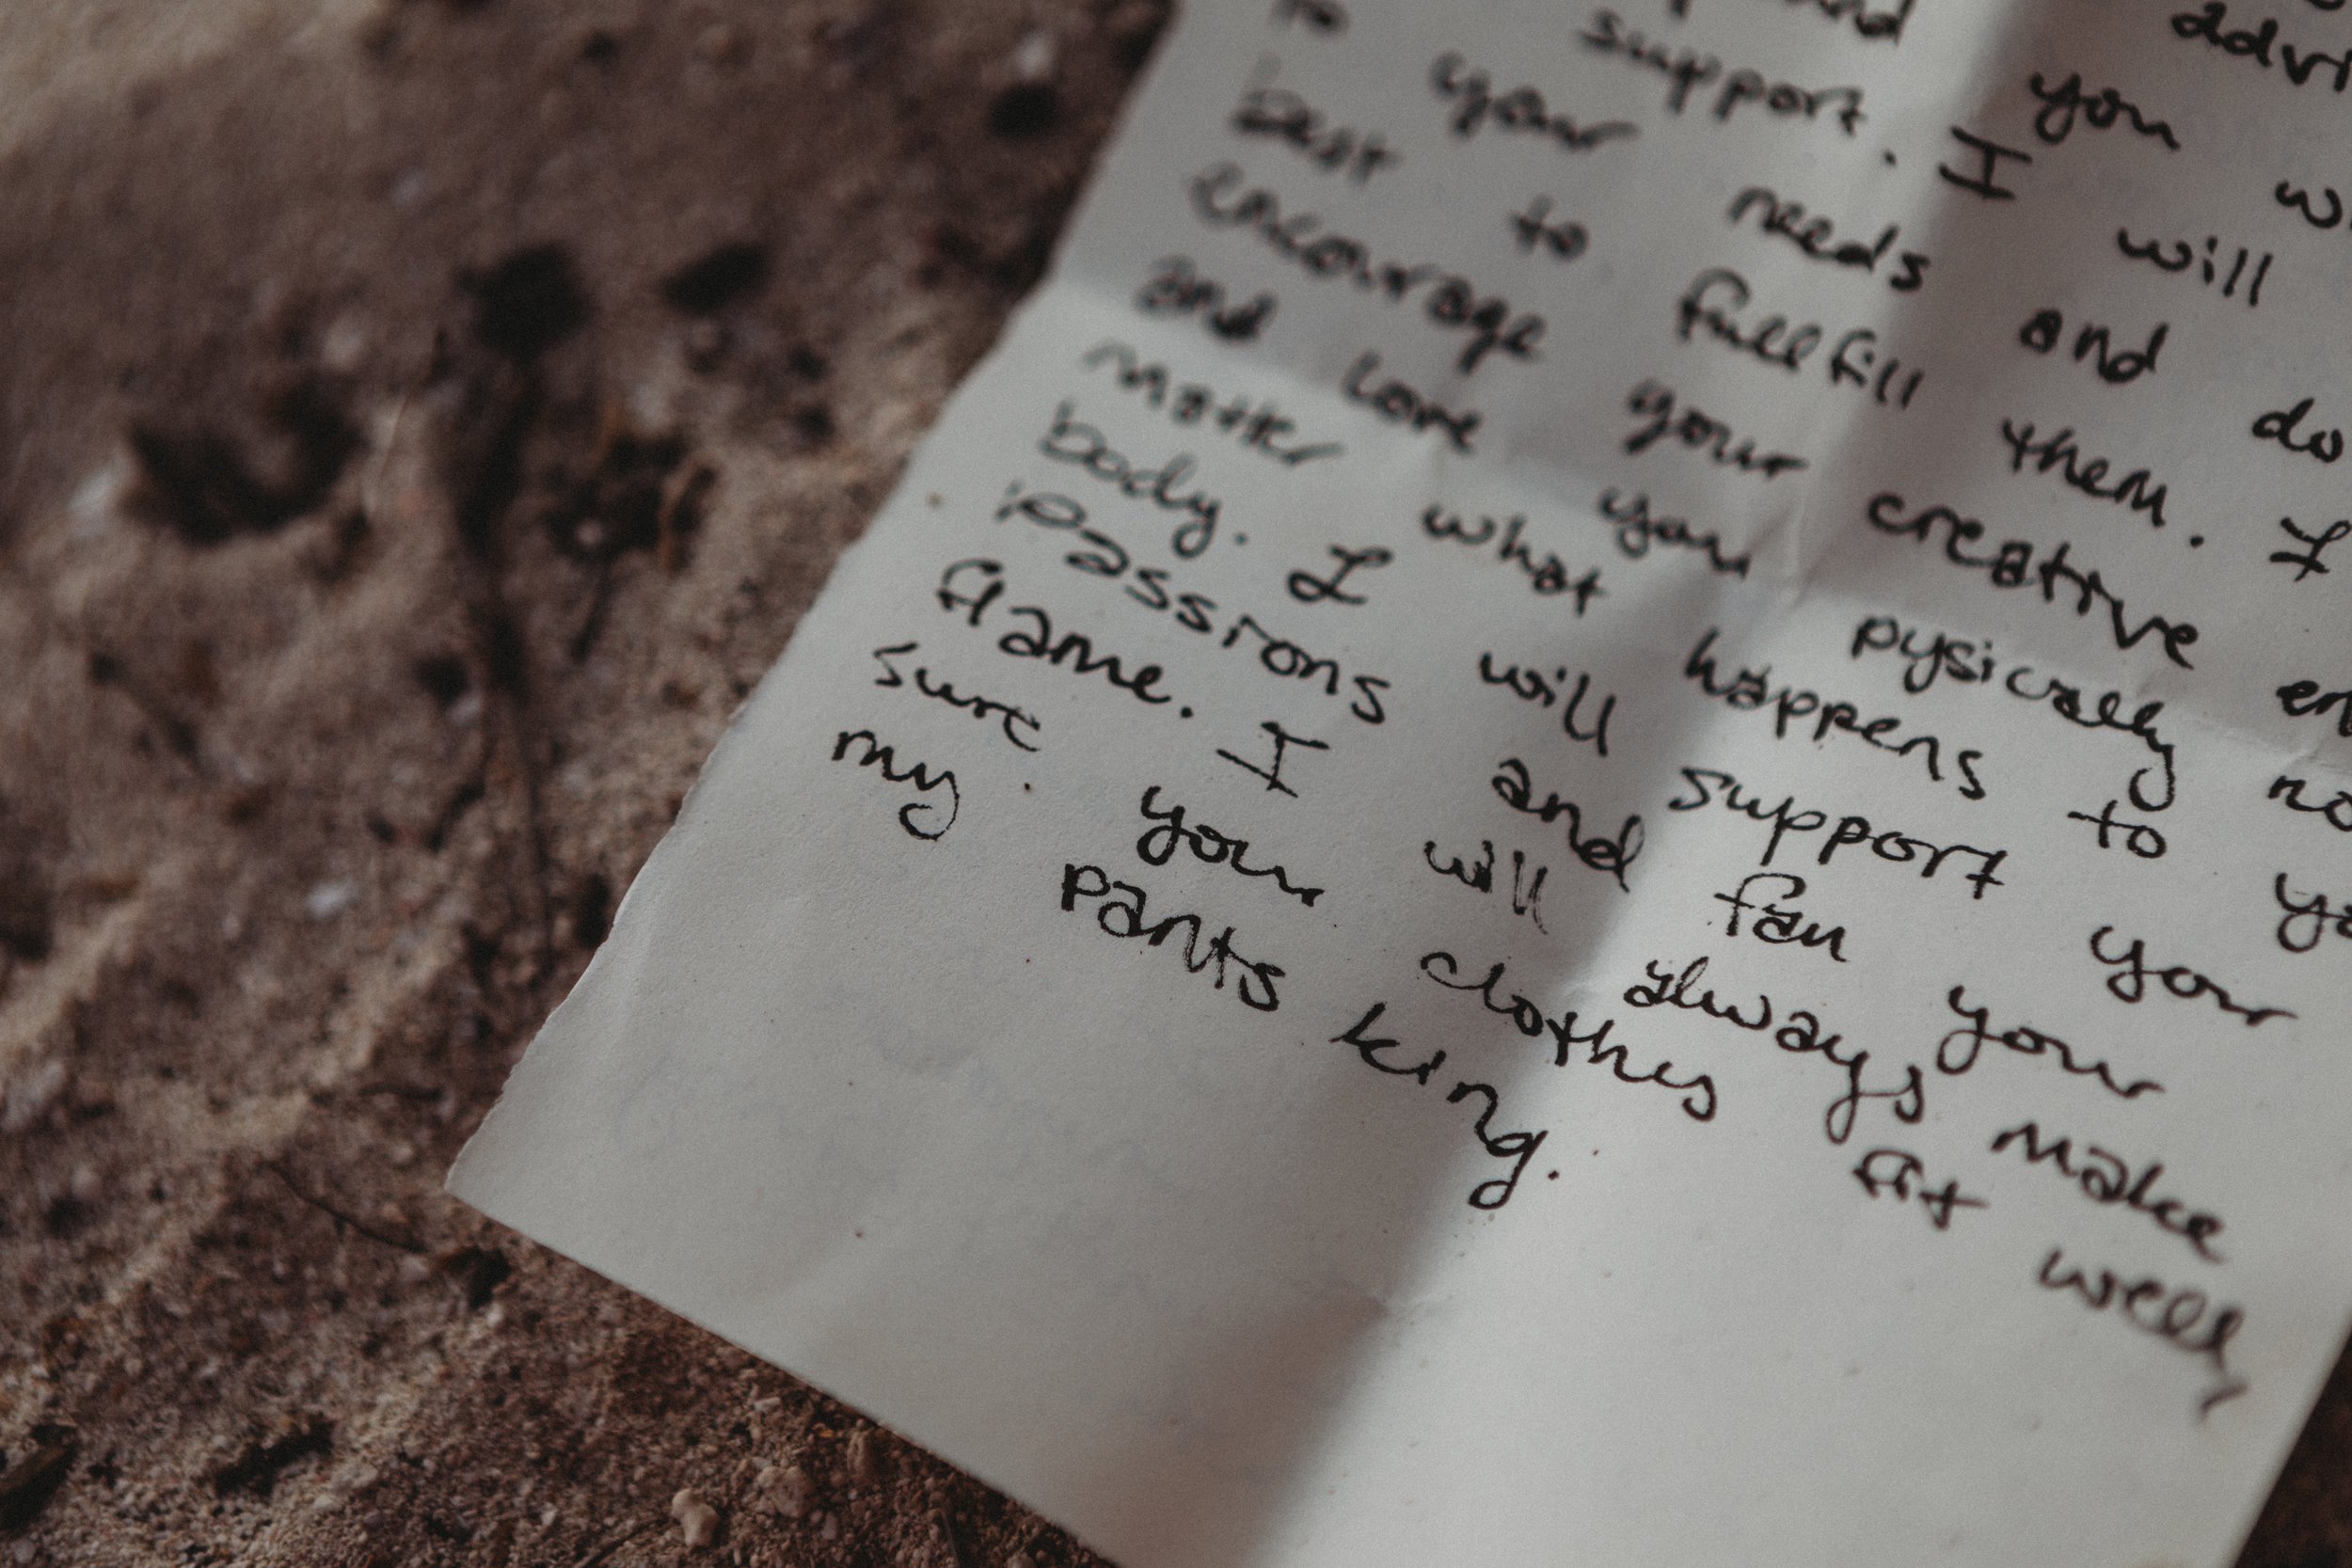 advi
and you w
support. I will
to your needs and do
Best to fullfill them. I
encourage your creative en
and love you pysically no
matter what happens to yo
body. I will support your
passions and fan your
flame. I will always make
sure your clothes fit well,
my pants king.